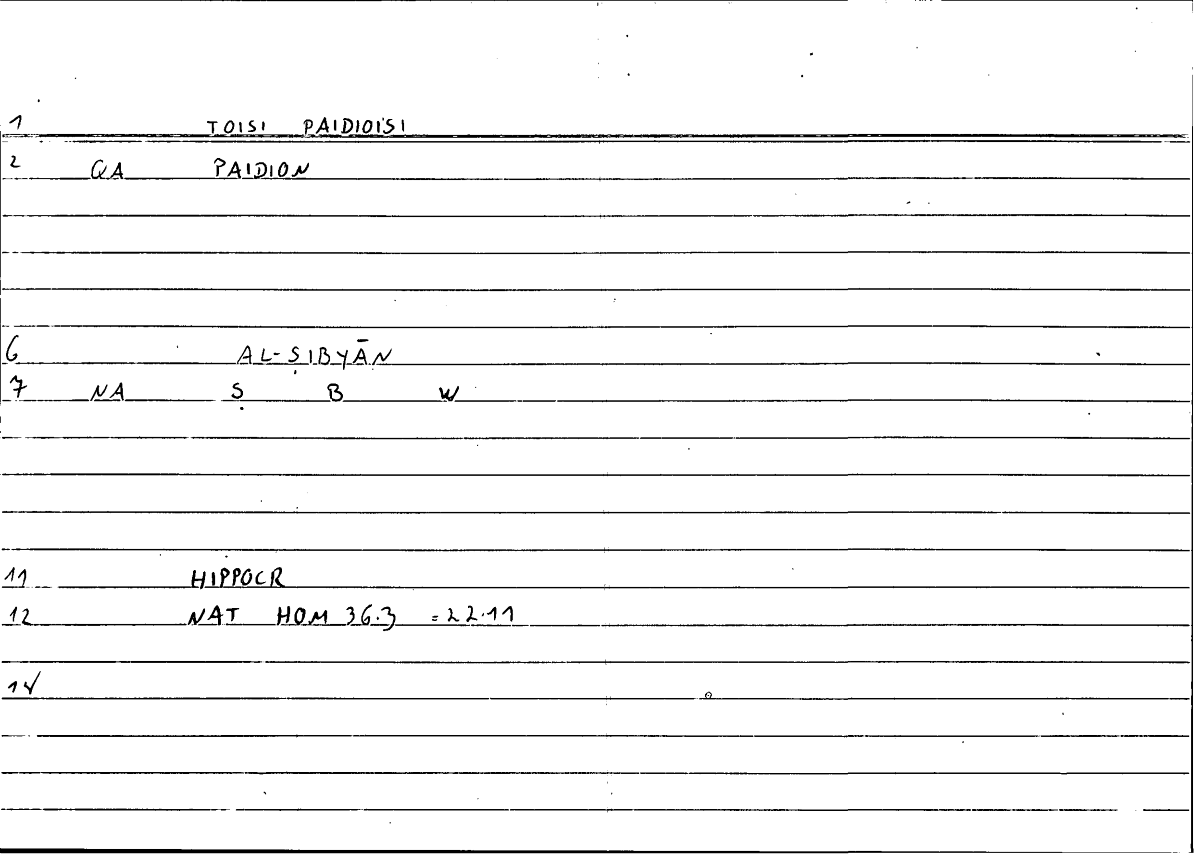 1 TOISI PAIDIOISI
2 QA PAIDION
6 AL-ṢIBYĀN
7 NA Ṣ B W
11 HIPPOCR
12 NAT HOM 36.3 = 22.11
14